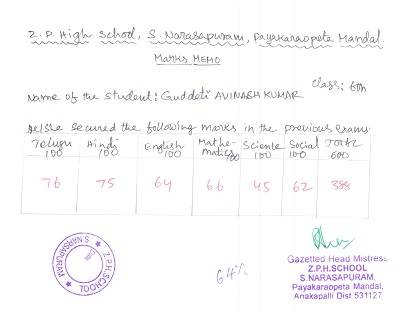 Z.P. High School, S. Narasapuram, Payakaraopeta Mandal.
Marks MEMO
Class: 6th
Name of the student: Guddeti AVINASH KUMAR
He/she secured the following marks in the previous Exams
Telugu 100 Hindi 100 English 100 Mathematics 100 Science 100 Social 100 Total 600
76 75 64 66 45 62 388
64%
Z.P.H. SCHOOL
S. NARSAPURAM
Gazetted Head Mistress
Z.P.H.SCHOOL
S.NARASAPURAM,
Payakaraopeta Mandal,
Anakapalli Dist 531127